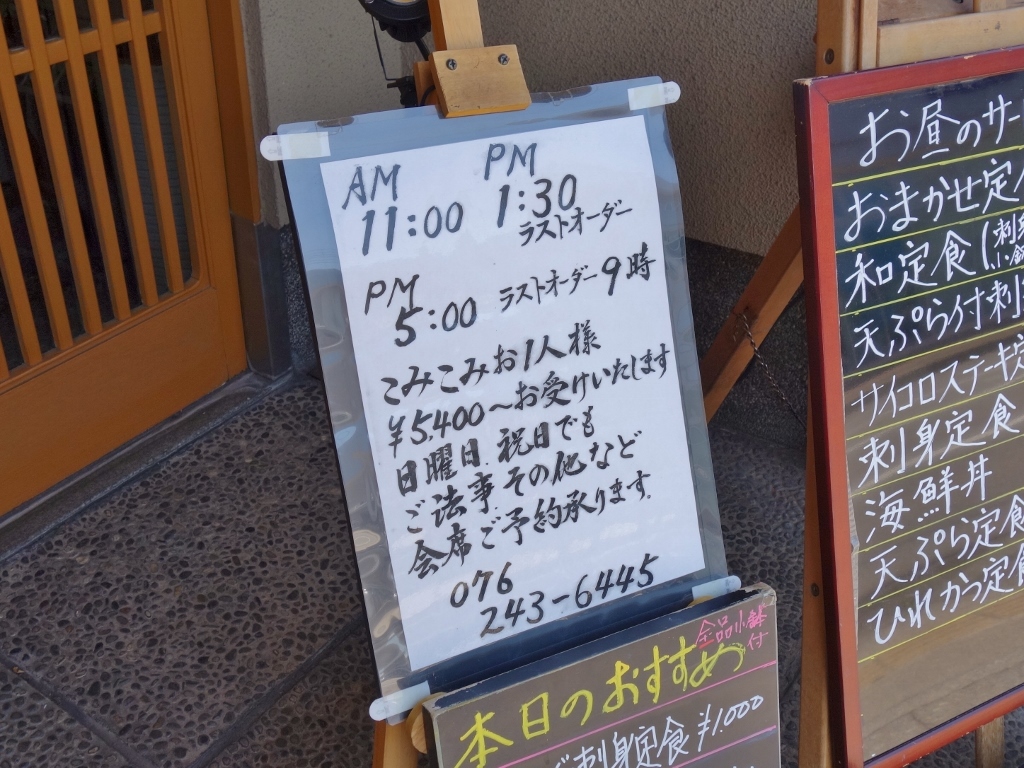 AM PM
11:00 1:30
ラストオーダー
PM
5:00 ラストオーダー9時
こみこみお1人様
¥5,400〜お受けいたします
日曜日.祝日でも
ご法事.その他など
会席ご予約承ります.
076
243-6445
全品小鉢付
本日のおすすめ
刺身定食¥1.000
お昼のサー
おまかせ定
和定食(刺
天ぷら付刺
サイコロステーキ定
刺身定食
海鮮丼
天ぷら定食
ひれかつ定食